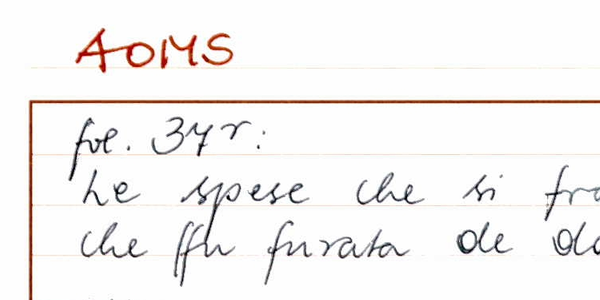 AOMS
fol. 37r:
Le spese che si fra
che ffu furata de do